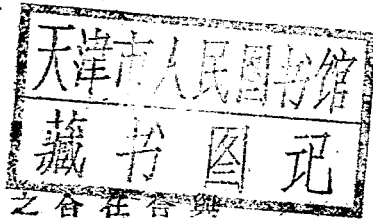 天津市人民图书馆
藏书图记
之合在合與